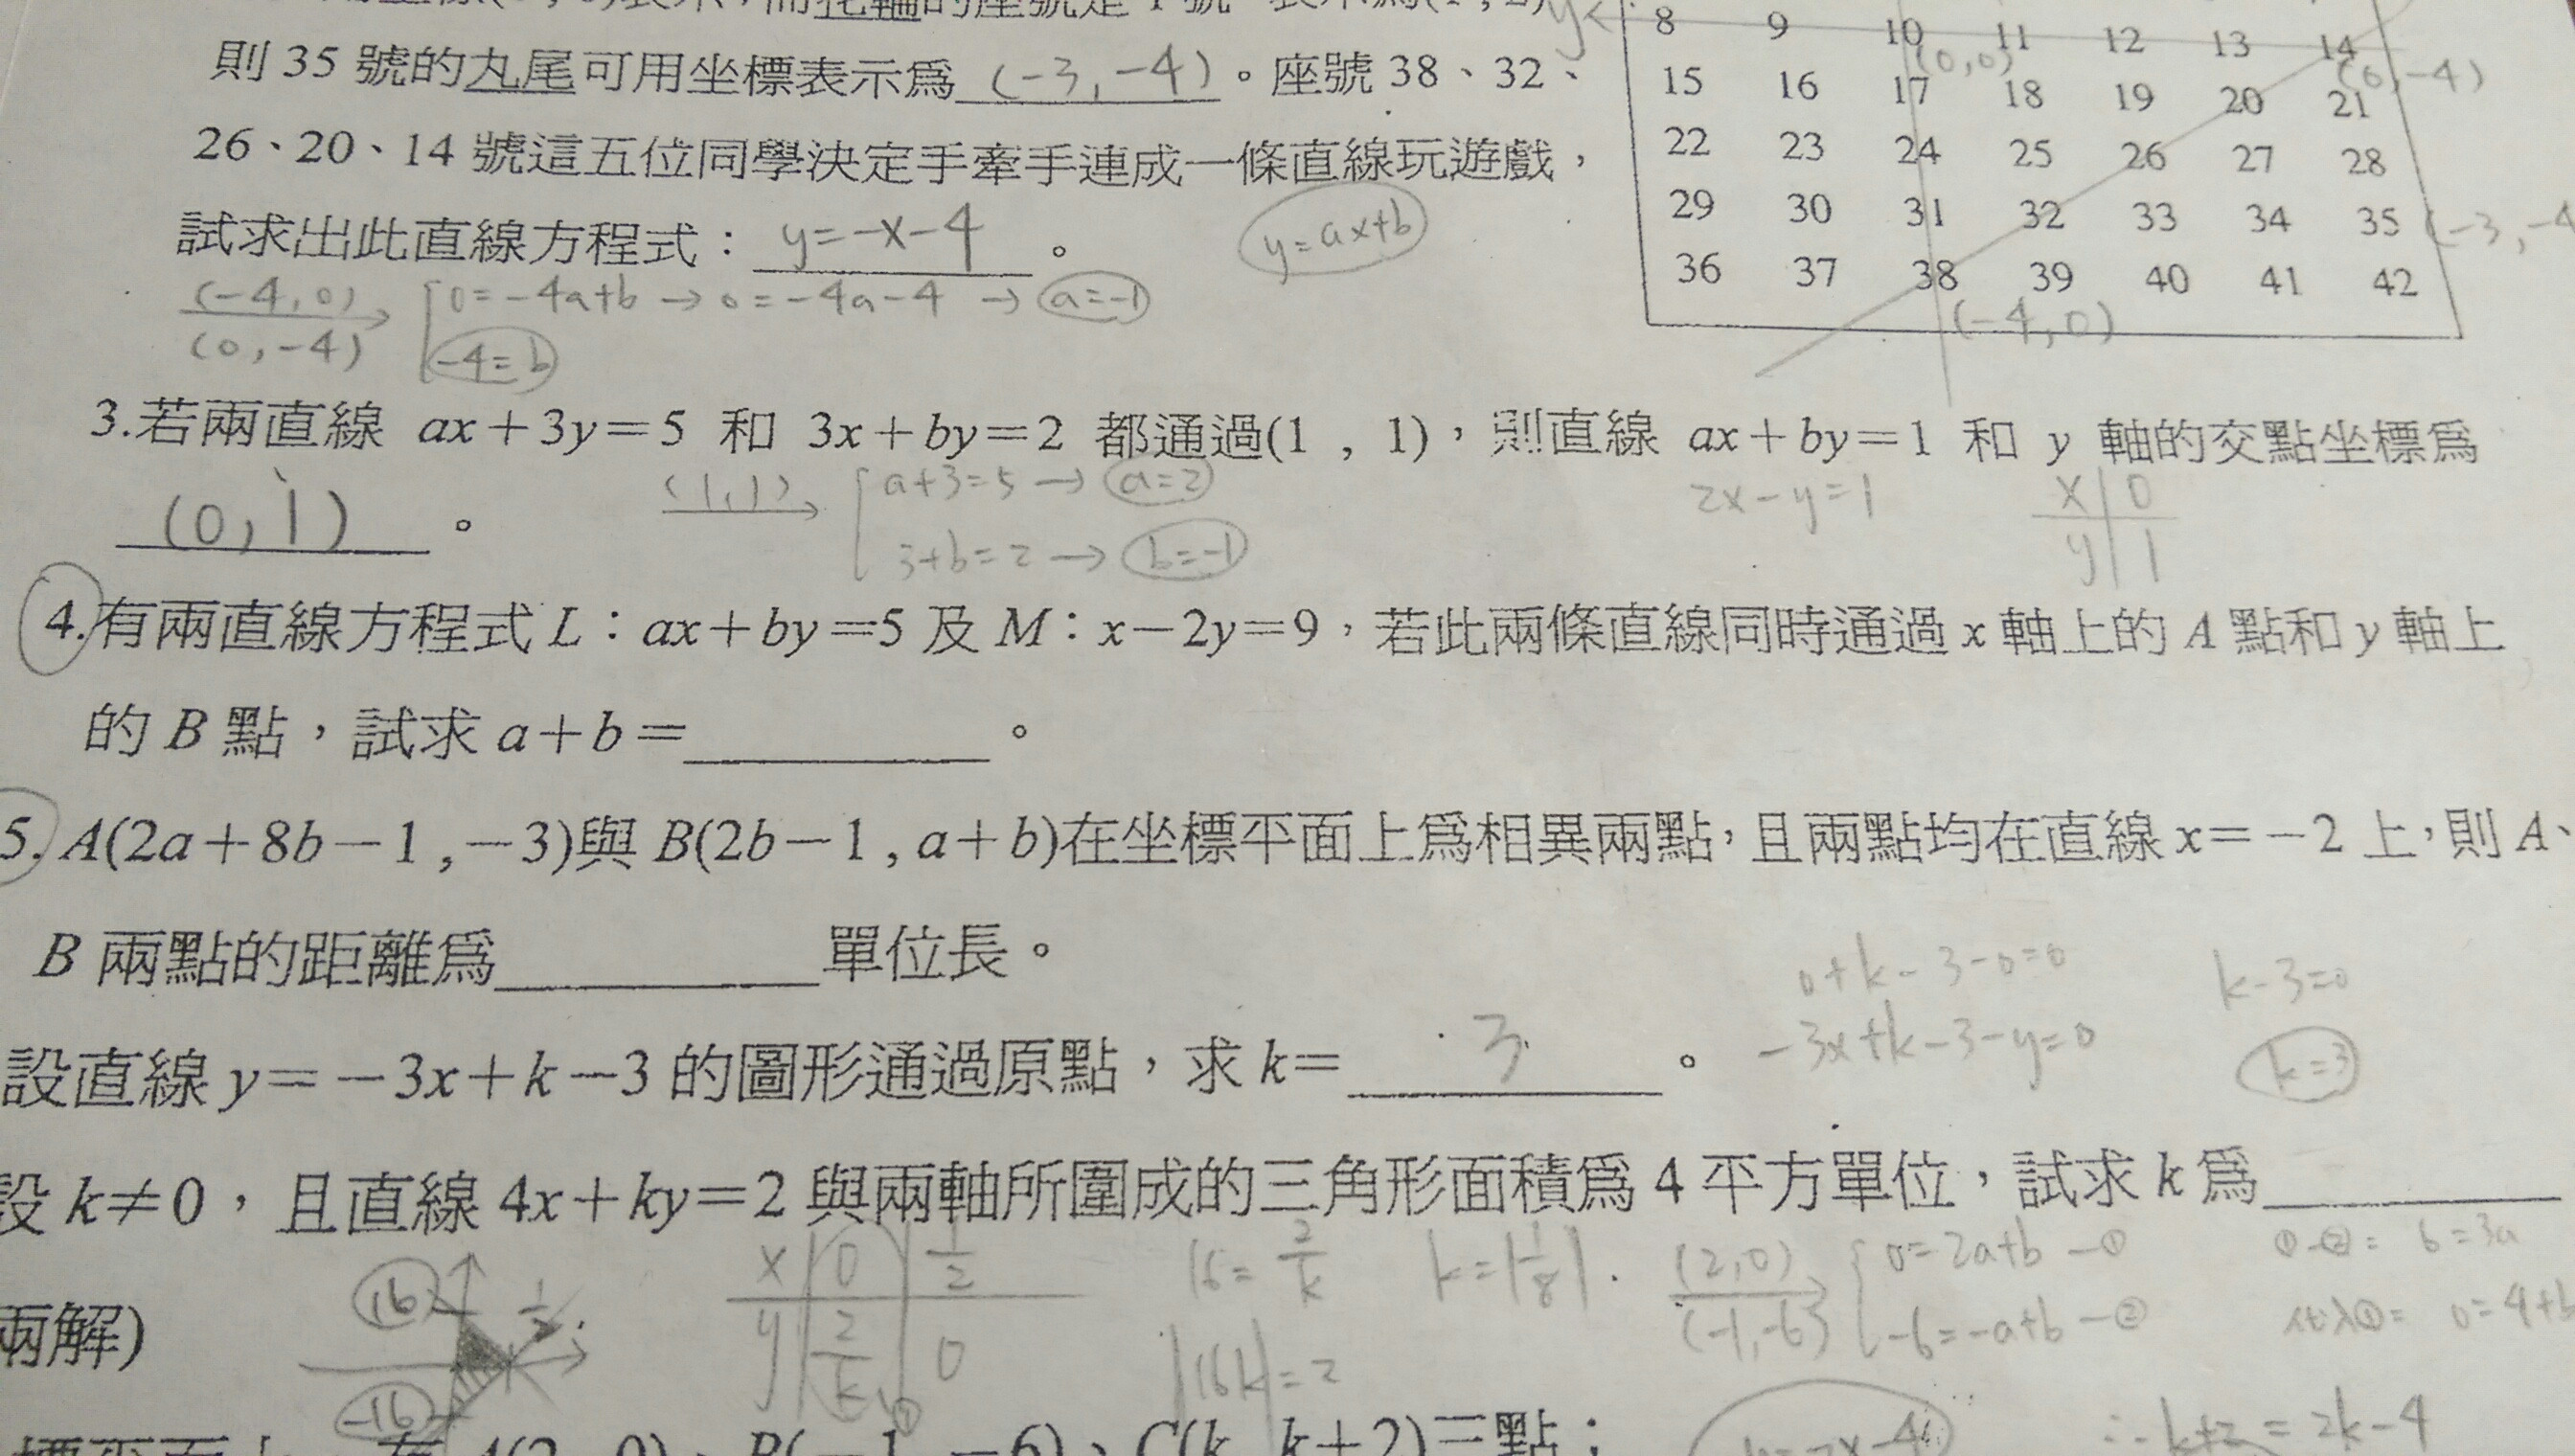 則 35 號的丸尾可用坐標表示爲 (-3,-4) 。座號 38、32、
26、20、14 號這五位同學決定手牽手連成一條直線玩遊戲，
試求出此直線方程式： y=-x-4 。
y=ax+b
(-4,0)
(0,-4)
0=-4a+b → 0=-4a-4 → a=-1
-4=b
8 9 10 11 12 13 14
(0,0)
15 16 17 18 19 20 21
22 23 24 25 26 27 28
29 30 31 32 33 34 35
(-3,-4
36 37 38 39 40 41 42
(-4,0)
3.若兩直線 ax+3y=5 和 3x+by=2 都通過(1 , 1)，則直線 ax+by=1 和 y 軸的交點坐標爲
(0,1) 。
(1,1)
a+3=5 → a=2
3+b=2 → b=-1
2x-y=1
x 0
y 1
4.有兩直線方程式 L：ax+by=5 及 M：x-2y=9，若此兩條直線同時通過 x 軸上的 A 點和 y 軸上
的 B 點，試求 a+b= 。
5. A(2a+8b-1 ,-3)與 B(2b-1 , a+b)在坐標平面上爲相異兩點，且兩點均在直線 x=-2 上，則 A、
B 兩點的距離爲 單位長。
0+k-3-0=0
k-3=0
設直線 y=-3x+k-3 的圖形通過原點，求 k= 3 。
-3x+k-3-y=0
k=3
設 k≠0，且直線 4x+ky=2 與兩軸所圍成的三角形面積爲 4 平方單位，試求 k 爲
兩解)
16
1/2
-16
x 0 1/2
y 2/k 0
16=2/k
k=|1/8|
|16k|=2
(2,0)
(-1,-6)
0=2a+b-①
-6=-a+b-②
①-②= 6=3a
代入①= 0=4+b
A(2 , 0)、B(-1 , -6)、C(k , k+2)三點；
∴k+2=2k-4